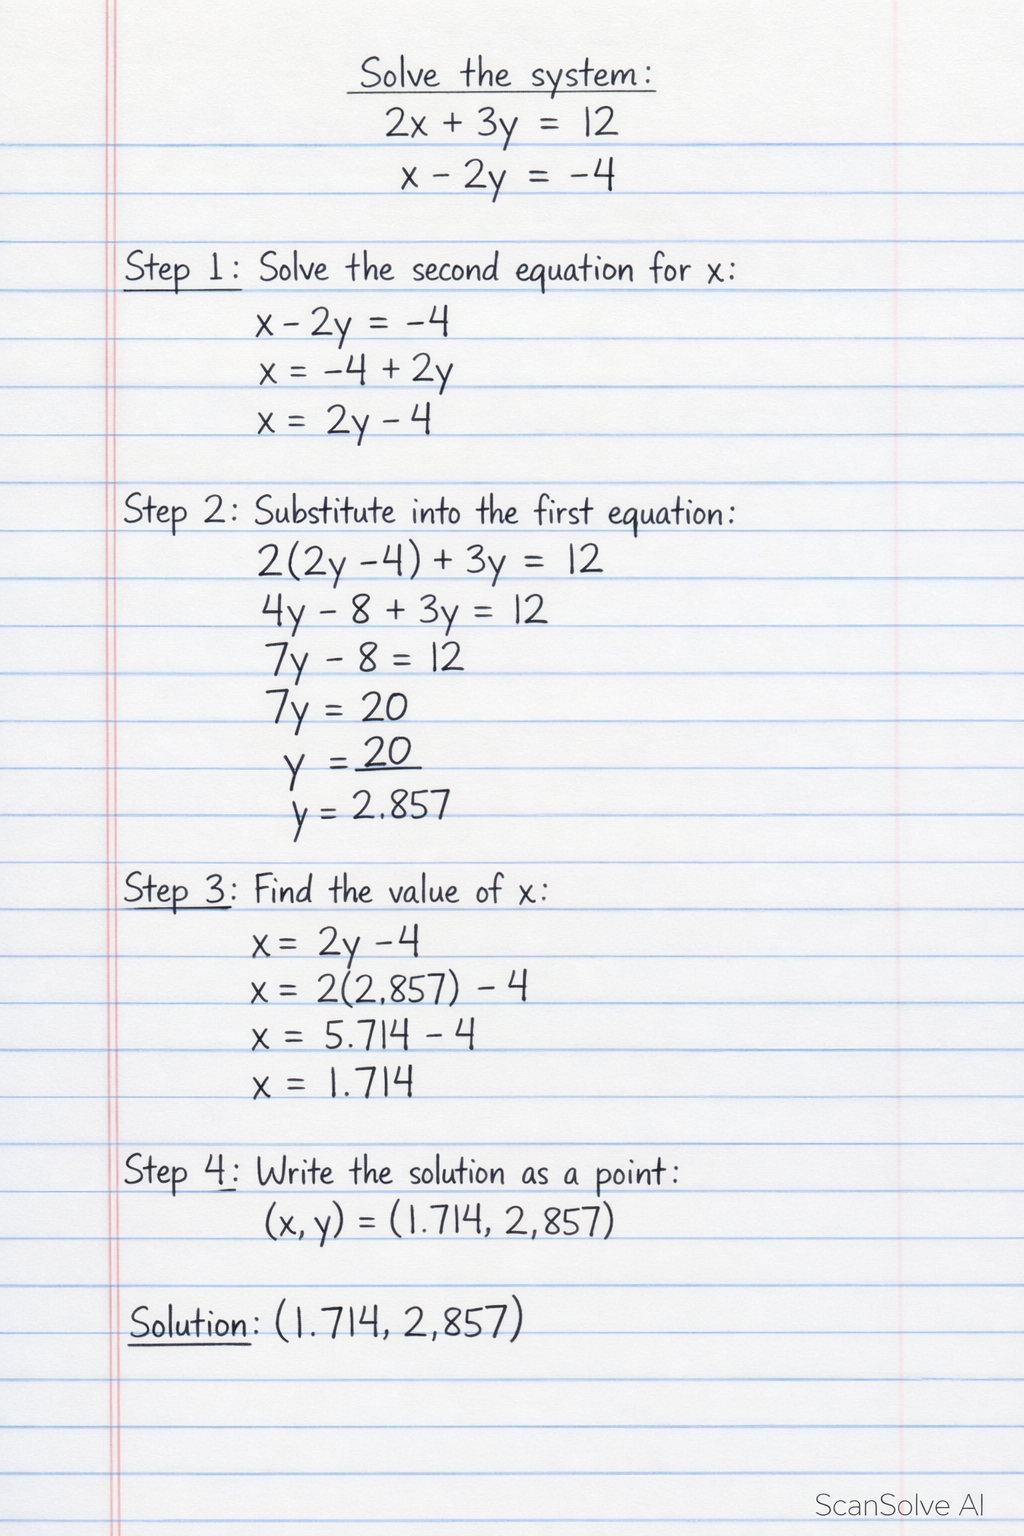 Solve the system:
2x + 3y = 12
x - 2y = -4
Step 1: Solve the second equation for x:
x - 2y = -4
x = -4 + 2y
x = 2y - 4
Step 2: Substitute into the first equation:
2(2y - 4) + 3y = 12
4y - 8 + 3y = 12
7y - 8 = 12
7y = 20
y = 20
y = 2.857
Step 3: Find the value of x:
x = 2y - 4
x = 2(2.857) - 4
x = 5.714 - 4
x = 1.714
Step 4: Write the solution as a point:
(x, y) = (1.714, 2,857)
Solution: (1.714, 2,857)
ScanSolve AI